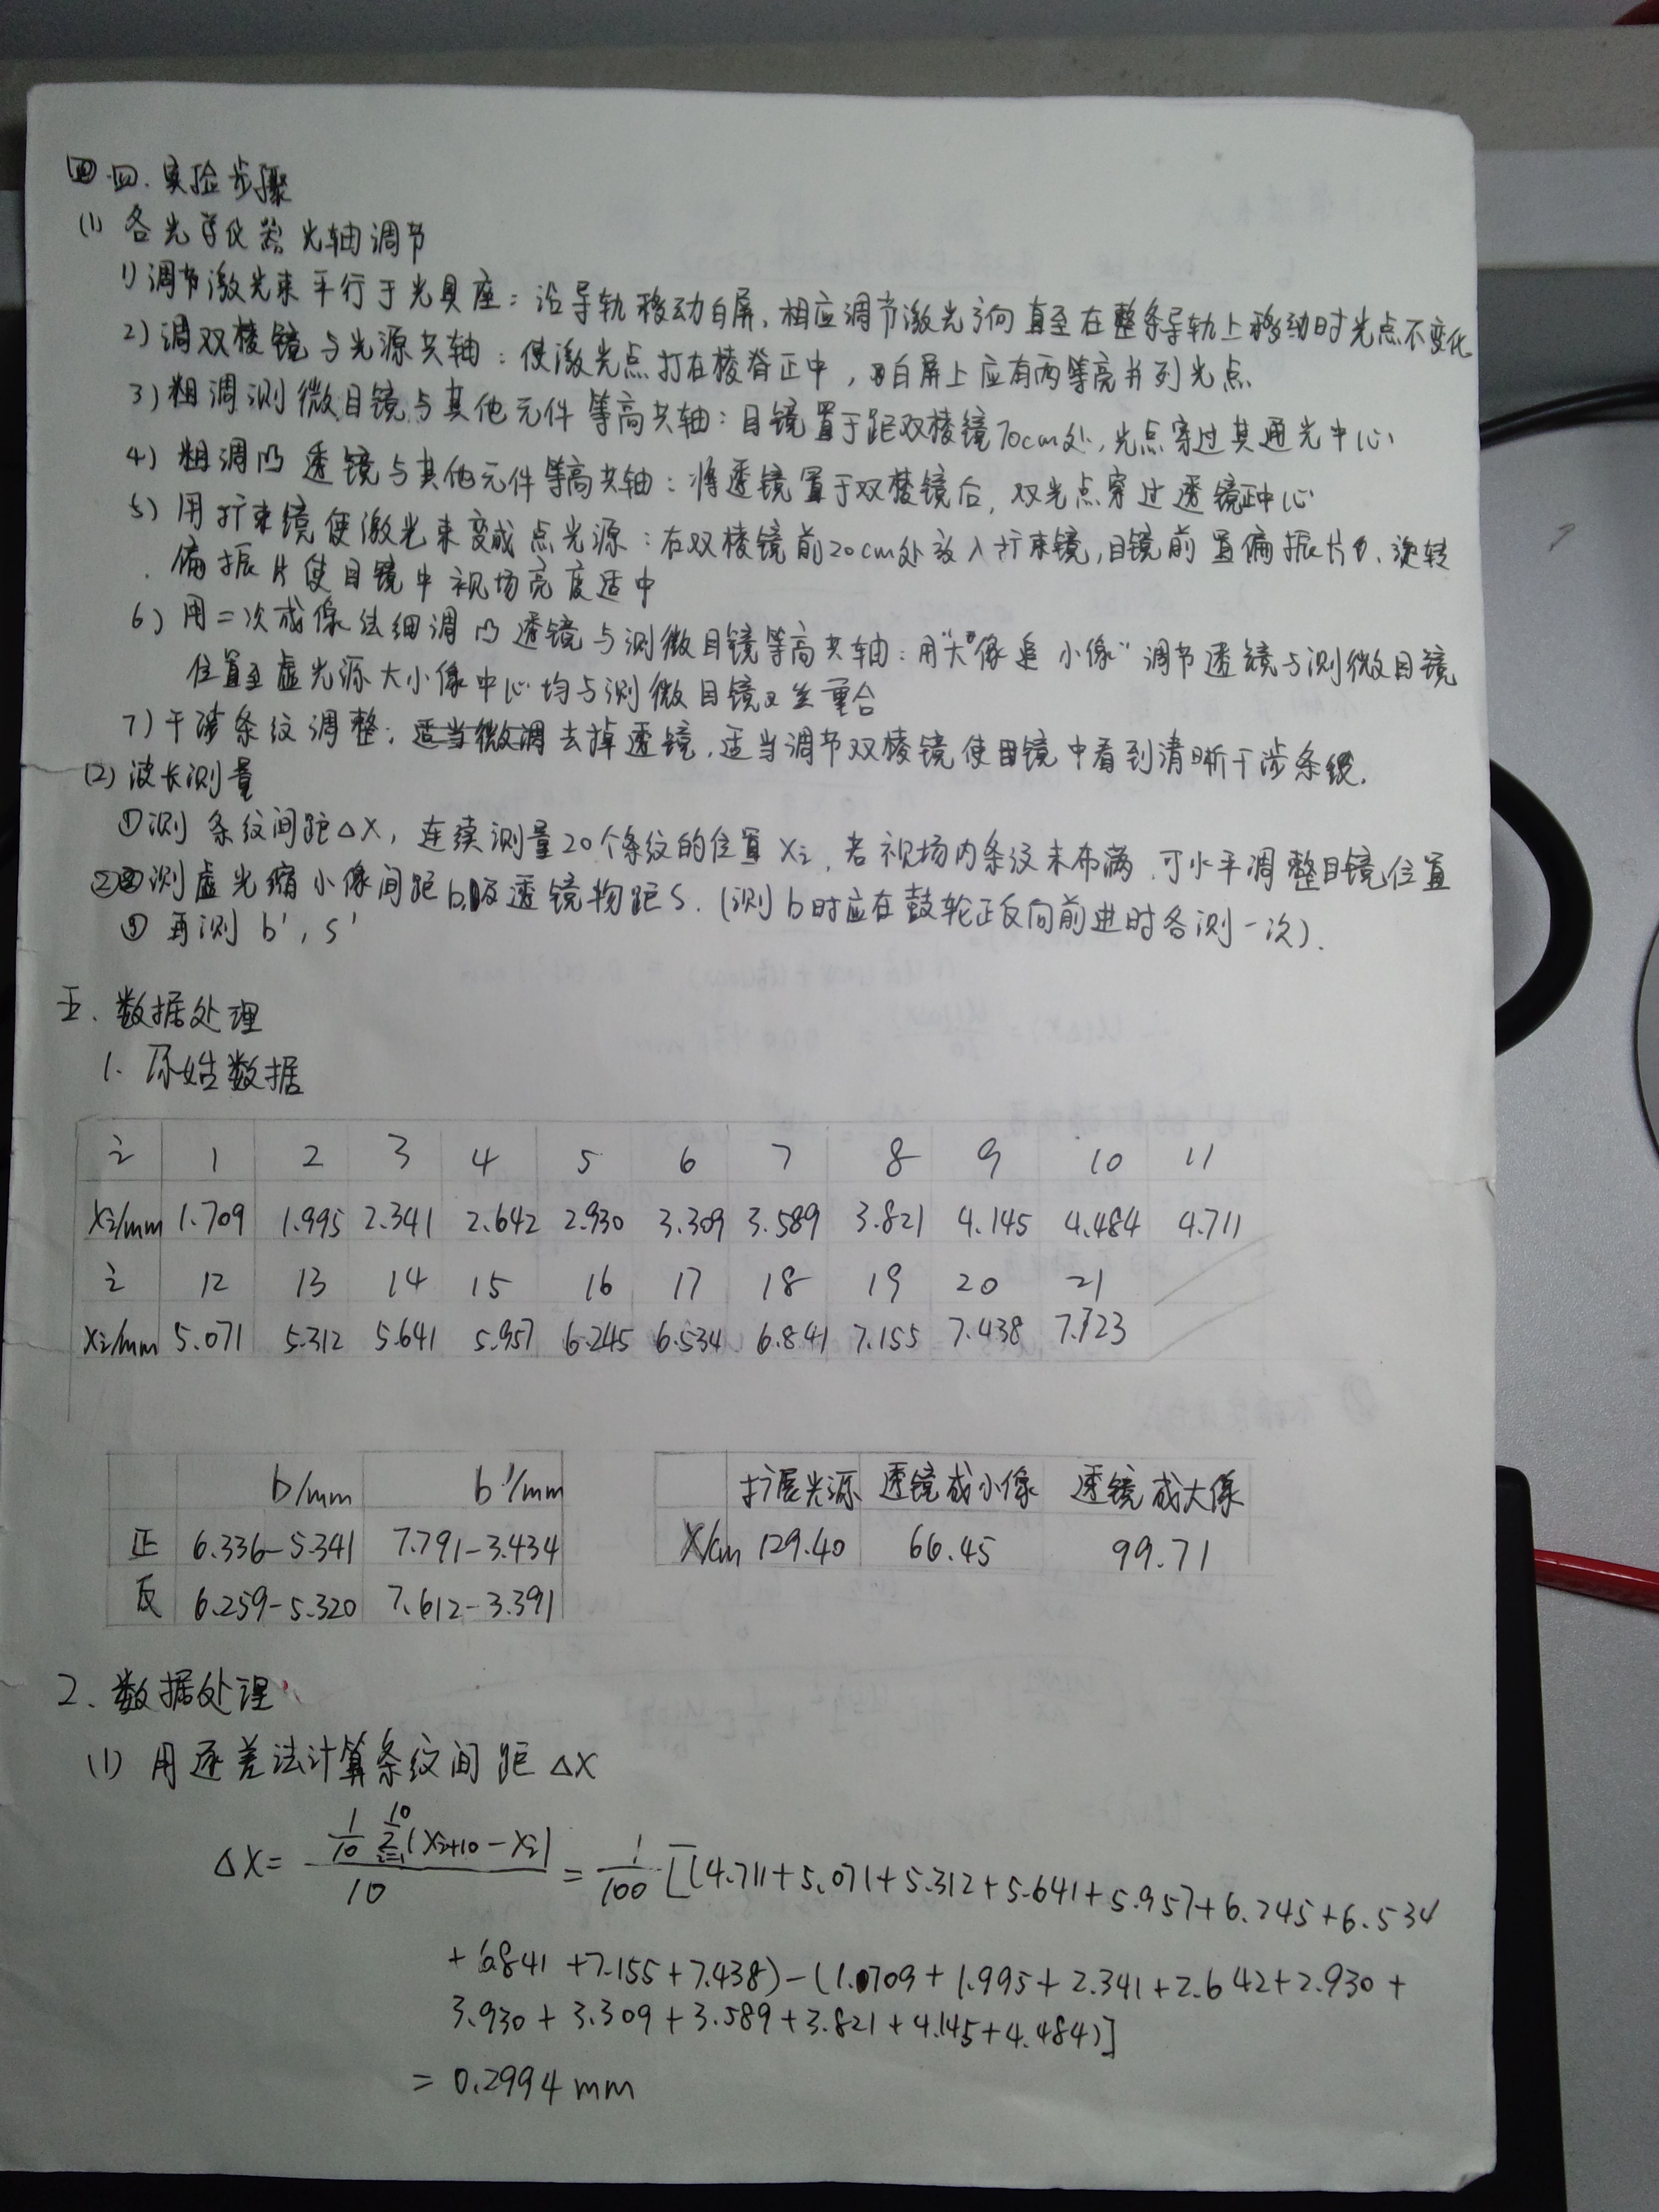 四 四. 实验步骤
(1) 各光学仪器光轴调节
1) 调节激光束平行于光具座：沿导轨移动白屏，相应调节激光方向直至在整条导轨上移动时光点不变化
2) 调双棱镜与光源共轴：使激光点打在棱脊正中，白屏上应有两等亮并列光点
3) 粗调测微目镜与其他元件等高共轴：目镜置于距双棱镜70cm处，光点穿过其通光中心
4) 粗调凸透镜与其他元件等高共轴：将透镜置于双棱镜后，双光点穿过透镜正中心
5) 用扩束镜使激光束变成点光源：在双棱镜前20cm处放入扩束镜，目镜前置偏振片，旋转
偏振片使目镜中视场亮度适中
6) 用二次成像法细调凸透镜与测微目镜等高共轴：用“大像追小像”调节透镜与测微目镜
位置至虚光源大小像中心均与测微目镜叉丝重合
7) 干涉条纹调整：适当微调去掉透镜，适当调节双棱镜使目镜中看到清晰干涉条纹.
(2) 波长测量
①测条纹间距△X，连续测量20个条纹的位置Xi，若视场内条纹未布满，可水平调整目镜位置
②测虚光缩小像间距b及透镜物距S.（测b时应在鼓轮正反向前进时各测一次）.
③ 再测 b′, S′
五. 数据处理
1. 原始数据
i 1 2 3 4 5 6 7 8 9 10 11
Xi/mm 1.709 1.995 2.341 2.642 2.930 3.309 3.589 3.821 4.145 4.484 4.711
i 12 13 14 15 16 17 18 19 20 21
Xi/mm 5.071 5.312 5.641 5.957 6.245 6.534 6.841 7.155 7.438 7.723
b/mm b′/mm
正 6.336-5.341 7.791-3.434
反 6.259-5.320 7.612-3.391
扩展光源 透镜成小像 透镜成大像
X/cm 129.40 66.45 99.71
2. 数据处理
(1) 用逐差法计算条纹间距 △X
△X = \frac{\frac{1}{10}\sum_{i=1}^{10}(X_{i+10}-X_i)}{10} = \frac{1}{100}[(4.711+5.071+5.312+5.641+5.957+6.245+6.534
+6.841+7.155+7.438)-(1.0709+1.995+2.341+2.642+2.930+
3.930+3.309+3.589+3.821+4.145+4.484)]
= 0.2994 mm